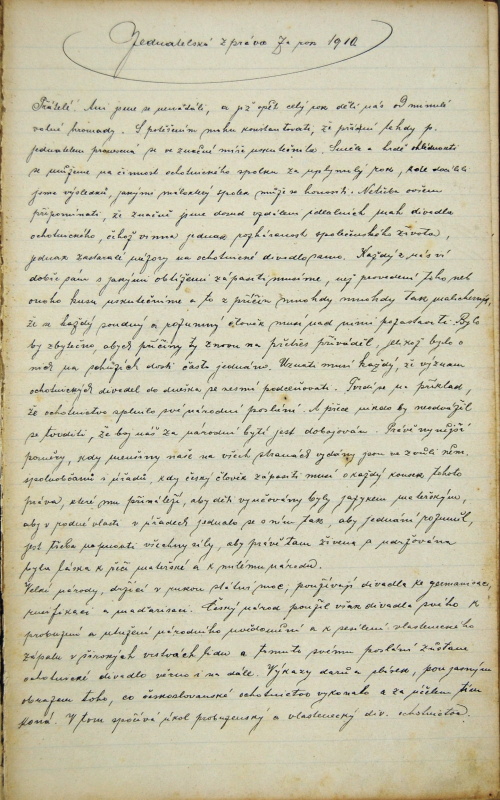 Jednatelská zpráva za rok 1910
Přátelé. Ani jsme se nenadáli, a již opět celý rok dělí nás od minulé
valné hromady. S potěšením mohu konstatovati, že přání tehdy p.
jednatelem pronesená se ve značné míře uskutečnila. Směle a hrdě ohlédnouti
se můžeme na činnost ochotnického spolku za uplynulý rok, kde docílili
jsme výsledků, jakými málokterý spolek může se honositi. Netřeba ovšem
připomínati, že značně jsme dosud vzdáleni ideálních snah divadla
ochotnického, čehož vinna jednak rozháranost společenského života,
jednak zastaralé názory na ochotnické divadlo samo. Každý z nás ví
dobře sám s jakými obtížemi zápasiti musíme, než provedení toho neb
onoho kusu uskutečníme a to z příčin mnohdy mnohdy tak malicherných,
že se každý soudný a rozumný člověk musí nad nimi pozastaviti. Bylo
by zbytečno, abych příčiny ty znovu na přetřes přiváděl, jelikož bylo o
nich na schůzích dosti často jednáno. Uznati musí každý, že význam
ochotnických divadel do dneška se nesmí podceňovati. Tvrdí se na příklad,
že ochotnictvo splnilo své národní poslání. A přece nikdo by neodvážil
se tvrditi, že boj náš za národní bytí jest dobojován. Právě nynější
poměry, kdy menšiny naše na všech stranách vydány jsou ve zvůli něm.
spoluobčanů i úřadů, kdy český člověk zápasiti musí o každý kousek tohoto
práva, které mu přináleží, aby děti vyučovány byly jazykem mateřským,
aby v rodné vlasti v úřadech jednalo se s ním tak, aby jednání rozuměl,
jest třeba napnouti všechny síly, aby právě tam živena a udržována
byla láska k řeči mateřské a k milému národu.
Velké národy, držící v rukou státní moc, používají divadla ke germanisaci,
rusifikaci a maďarisaci. Český národ použil však divadla svého k
probuzení a utužení národního uvědomění a k sesílení vlasteneckého
zápalu v širokých vrstvách lidu a tomuto svému poslání zůstane
ochotnické divadlo věrno i na dále. Výkazy darů a sbírek, jsou jasným
obrazem toho, co českoslovanské ochotnictvo vykonalo a za účelem tím
koná. V tom spočívá úkol probuzenský a vlastenecký div. ochotnictva.